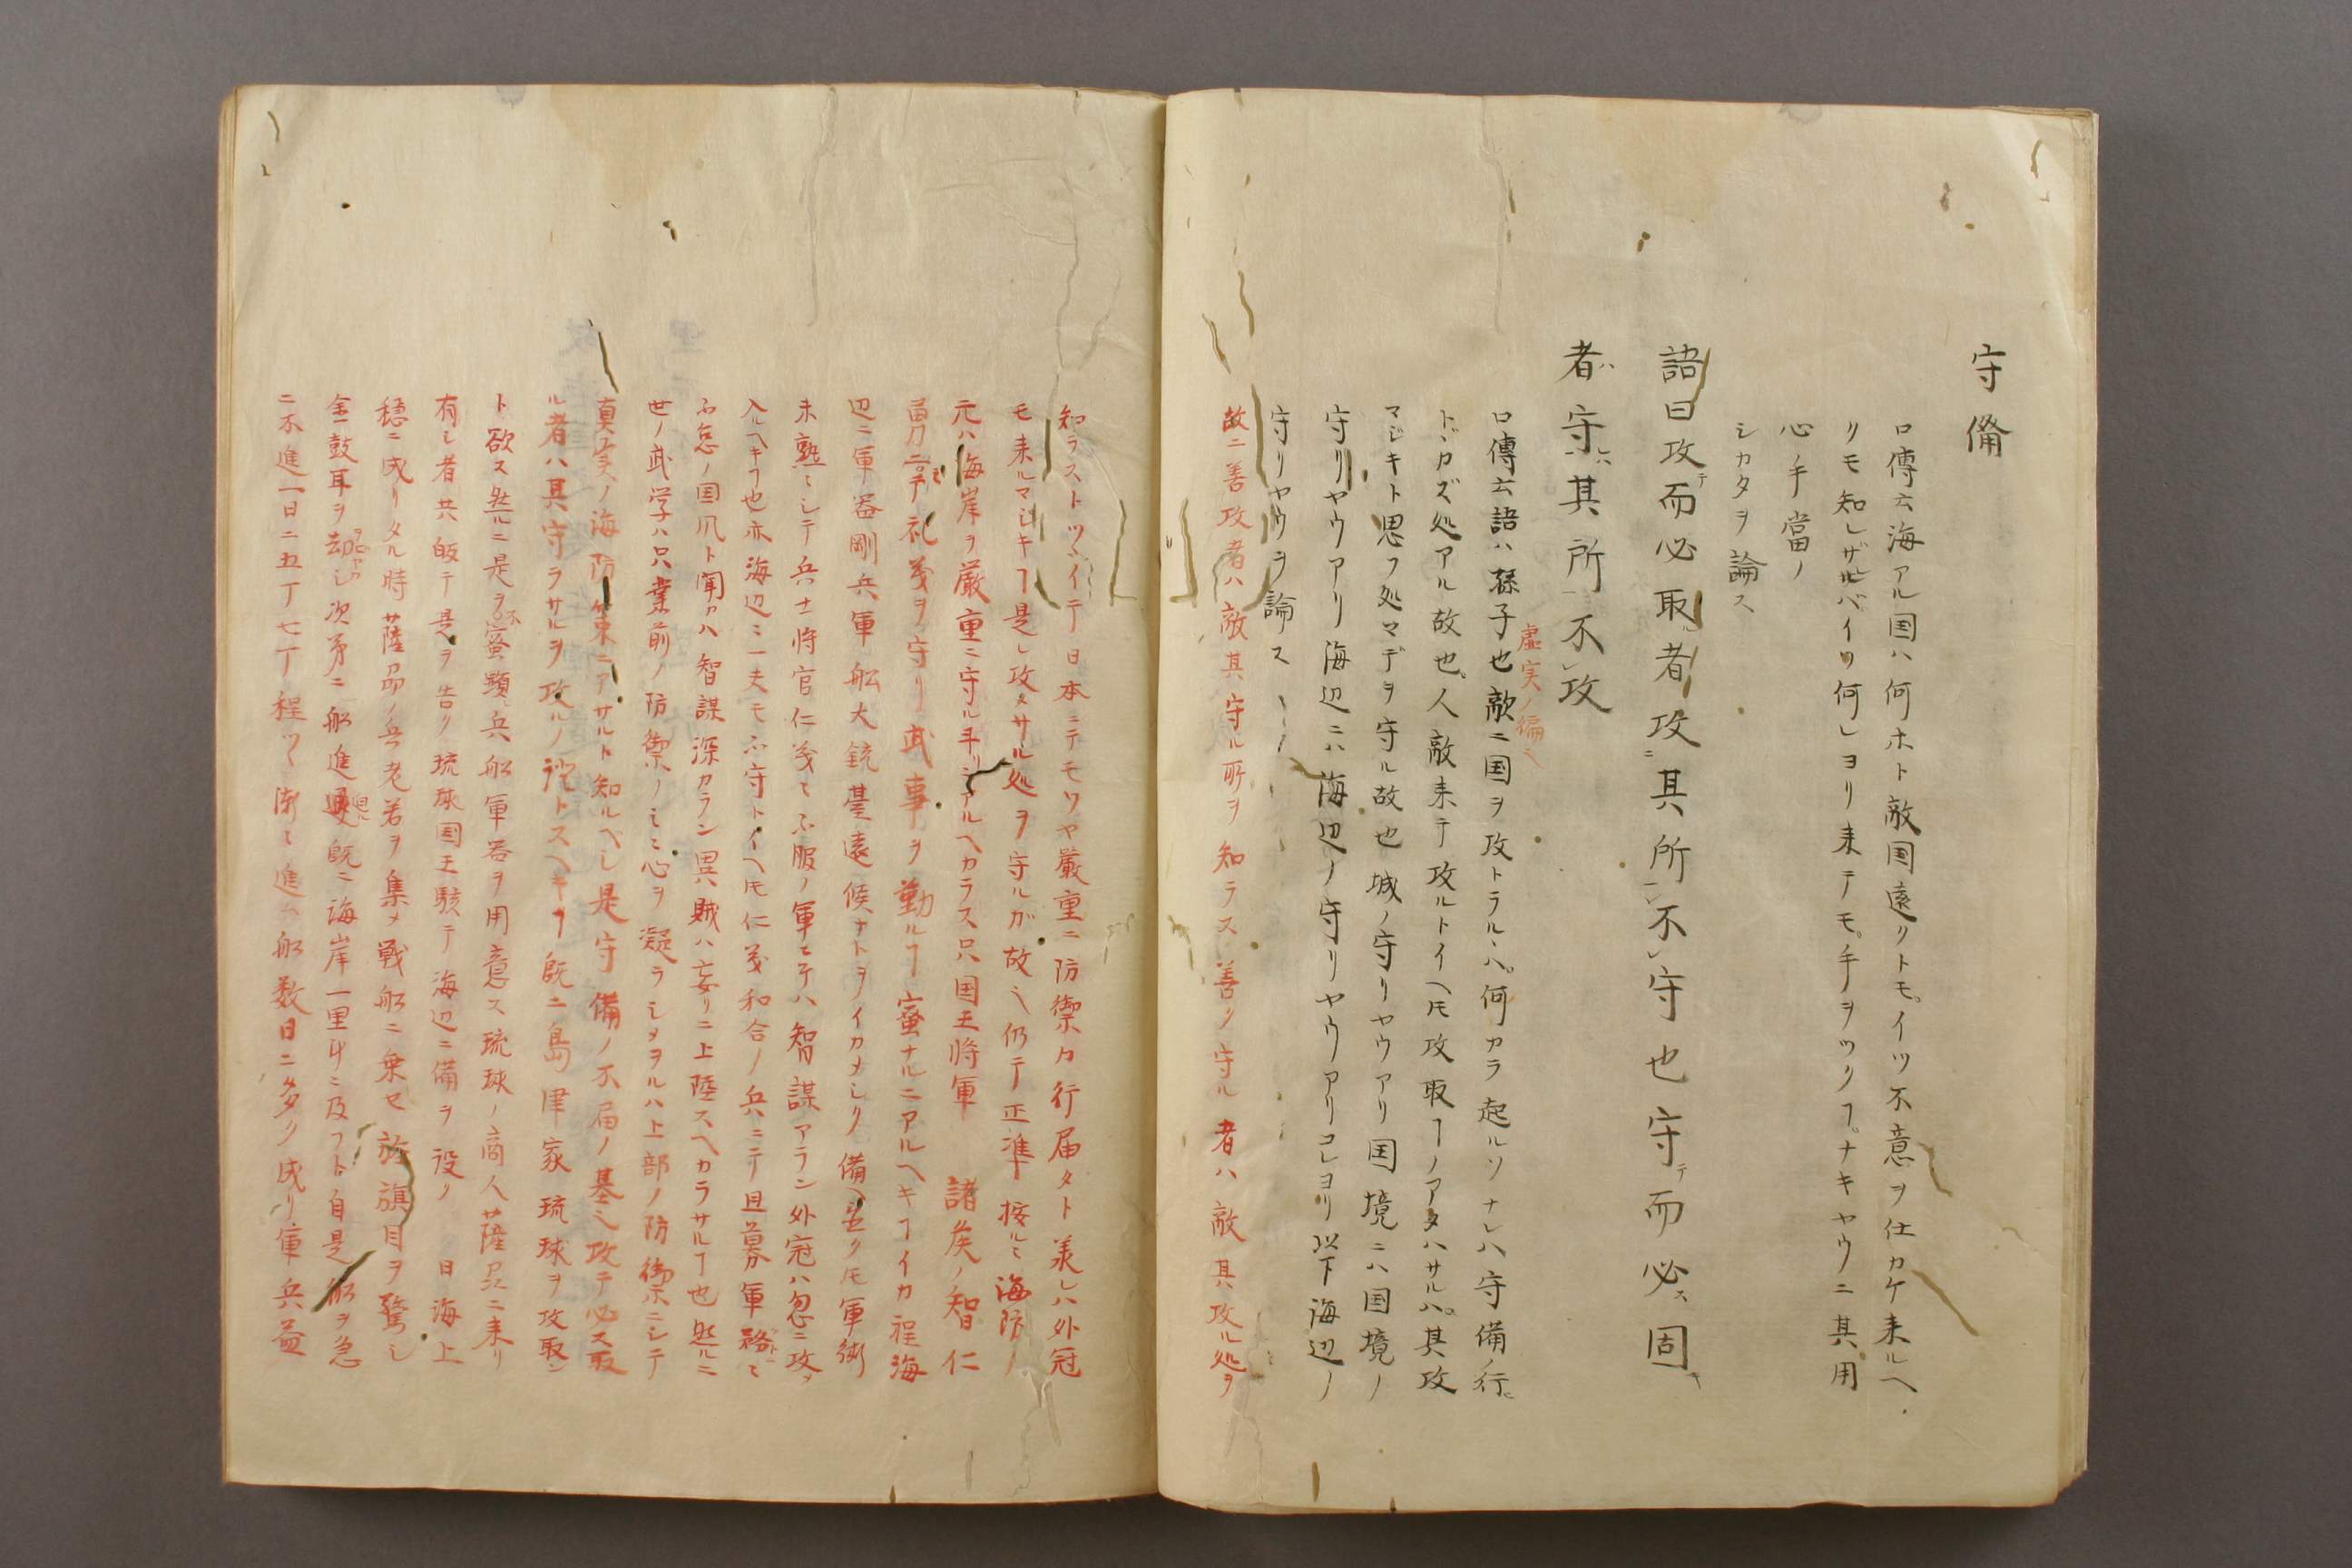 守備
口傳云海アル国ハ何ホト敵国遠クトモ。イツ不意ヲ仕カケ来ルヘ
クモ知レザレバイツ何レヨリ来テモ。手ヲツクヿナキヤウニ其用
心ノ手當ノ
シカタヲ論ス
語曰攻テ而必取ル者攻ニ其所ヲ不レ守也守テ而必ス固キ
者ハ守ニハ其所ヲ不レ攻
虚実ノ編ニ
口傳云語ハ孫子也敵ニ国ヲ攻トラルヽハ。何カラ起ルソナレハ守備ノ行
トヾカズ処アル故也。人敵来テ攻ルトイヘ𪜈攻取ヿノアタハサルハ。其攻
マジキト思フ処マデヲ守ル故也城ノ守リヤウアリ国境ニハ国境ノ
守リヤウアリ海辺ニハ海辺ノ守リヤウアリコレヨリ以下海辺ノ
守リヤウヲ論ス
故ニ善攻者ハ敵其守ル所ヲ知ラス善ク守ル者ハ敵其攻ル処ヲ
知ラストツヽイテ日本ニテモツヤ嚴重ニ防禦カ行届タト羙レハ外冠
モ来ルマシキヿ是レ攻メサル処ヲ守ルガ故也仍テ正準按ルニ海防ノ
元ハ海岸ヲ厳重ニ守ル斗リニアルヘカラス只国王將軍 諸矦ノ智仁
勇ニ〆礼義ヲ守リ武事ヲ勤ルヿ蜜ナルニアルヘキヿイカ程海
辺ニ軍器剛兵軍舩大銃䑓遠候ナトヲイカメシク備ヘ置ク𪜈軍術
未熟ニシテ兵士将官仁義ニ不服ノ軍モテハ智謀アラン外冠ハ忽ニ攻
入ルヘキヿ也亦海辺ニ一夫モ不守トイヘ𪜈仁義和合ノ兵ニテ且募軍務ニ
不怠ノ国凨ト闻カハ智謀深カラン異賊ハ妄リニ上陸スヘカラサルヿ也然ルニ
世ノ武学ハ只業前ノ防禦ノミニ心ヲ凝ラシメヲルハ上部ノ防禦ニシテ
真実ノ海防策ニアサルト知ルベシ是守備ノ不届ノ基也攻テ必ス取
ル者ハ其守ラサルヲ攻ルノ証トスヘキヿ既ニ島津家琉球ヲ攻取ン
ト欲ス然ルニ是ヲ不蜜顕兵舩軍器ヲ用意ス琉球ノ商人薩刕ニ来リ
有シ者共皈テ是ヲ告ク琉球国王駭テ海辺ニ備ヲ設ク 日海上
穏ニ成リタル時薩刕ノ兵老若ヲ集メ戦舩ニ乗セ於旗目ヲ驚シ
金鼓耳ヲ却シ次㐧ニ舩進退既ニ海岸一里斗ニ及フト自是舩ヲ急
ニ不進一日ニ五丁七丁程ツヽ漸ニ進ム舩数日ニ多ク成リ軍兵益